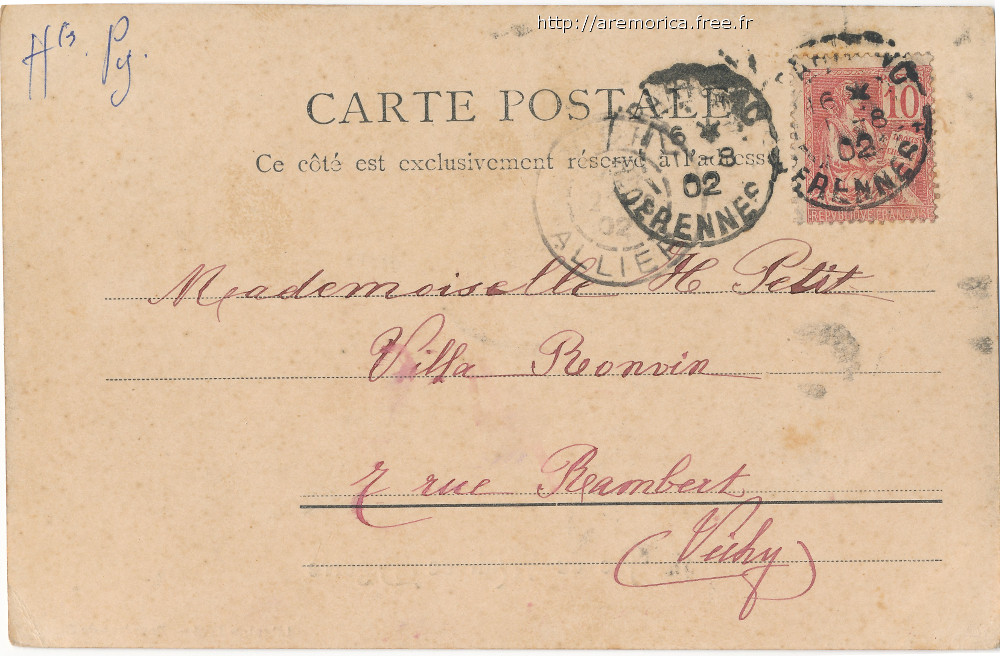 http://aremorica.free.fr
Hte Py.
CARTE POSTALE
Ce côté est exclusivement réservé à l'adresse
6
8
02
DERENNES
10
6
8
02
DERENNES
REPUBLIQUE FRANÇAISE
02
ALLIER
Mademoiselle H Petit
Villa Ronvin
7 rue Rambert
(Vichy)